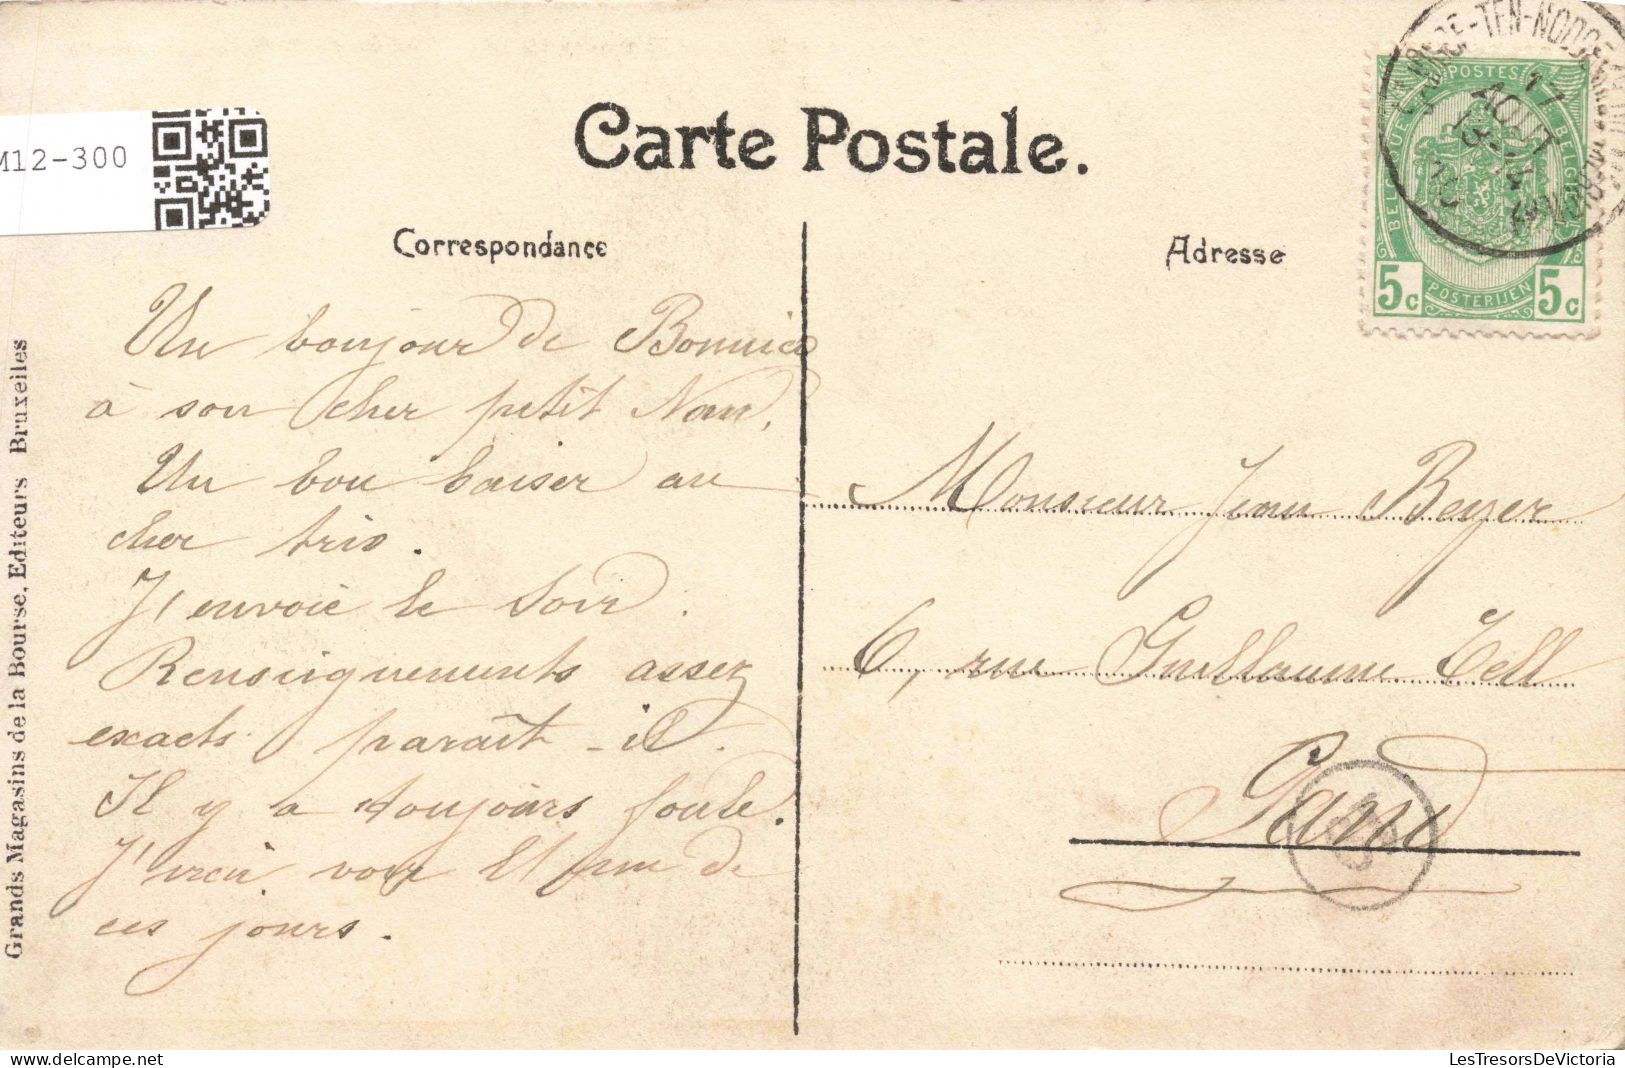 M12-300
Carte Postale.
Correspondance
Adresse
POSTES
BELGIQUE
BELGIË
POSTERIJEN
5c 5c
TEN-NOODE
17
AOUT
13-14
Un bonjour de
à son cher petit Nan,
Un bon baiser au
cher trio.
J'envoie le soir.
Renseignements assez
exacts paraît-il.
Il y a toujours foule.
J'irai voir de
ces jours.
Monsieur Jean Beyer
6, rue Guillaume Tell
Gand
Grands Magasins de la Bourse, Editeurs Bruxelles
LesTresorsDeVictoria